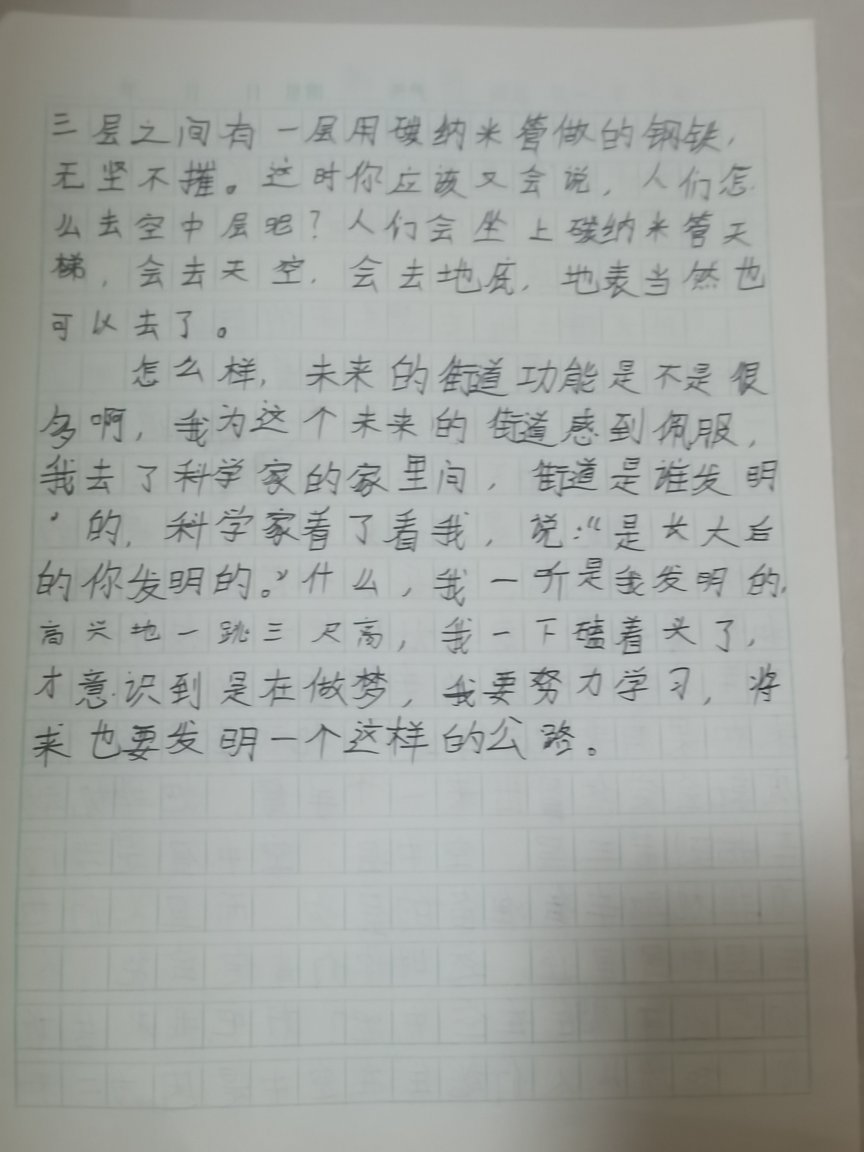 三层之间有一层用碳纳米管做的钢铁，
无坚不摧。这时你应该又会说，人们怎
么去空中层呢？人们会坐上碳纳米管天
梯，会去天空，会去地底，地表当然也
可以去了。
怎么样，未来的街道功能是不是很
多啊，我为这个未来的街道感到佩服，
我去了科学家的家里问，街道是谁发明
的，科学家看了看我，说：“是长大后
的你发明的。”什么，我一听是我发明的，
高兴地一跳三尺高，我一下磕着头了，
才意识到是在做梦，我要努力学习，将
来也要发明一个这样的公路。